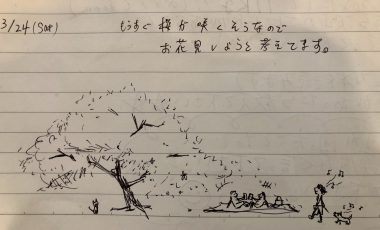 3/24(Sat)
もうすぐ桜が咲くそうなので
お花見しようと考えてます。